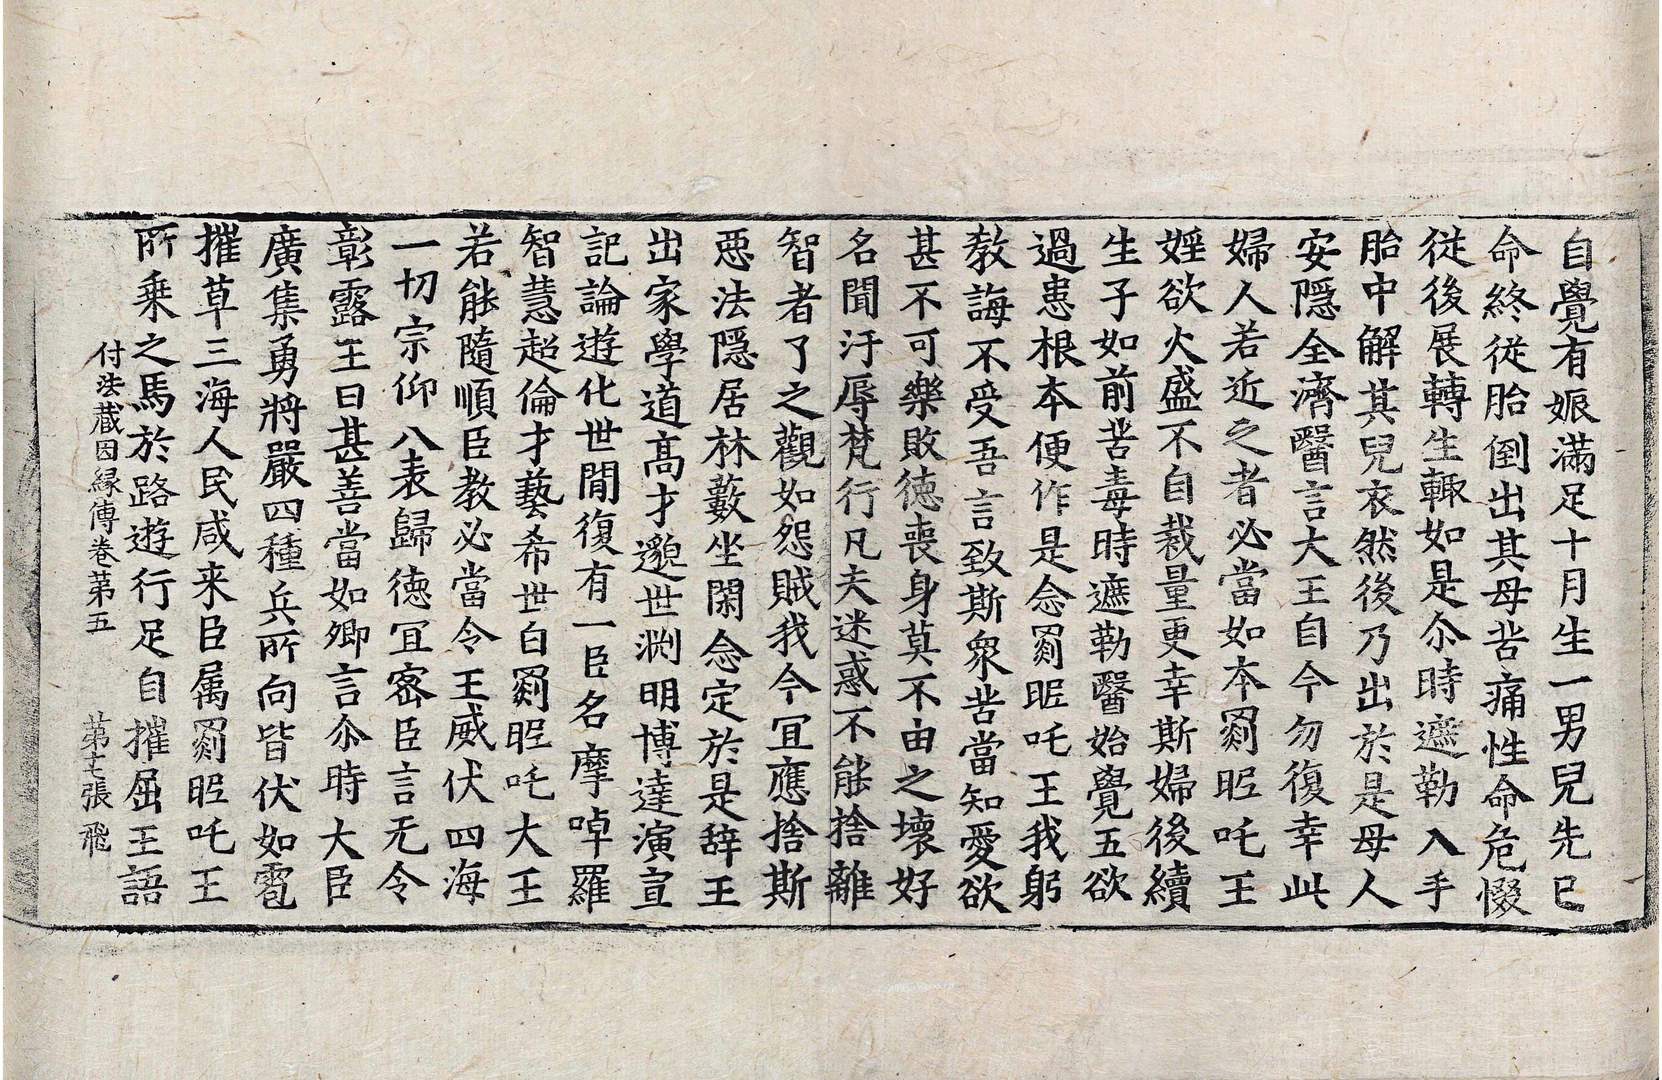 自覺有娠滿足十月生一男兒先已
命終從胎倒出其母苦痛性命危惙
從後展轉生輙如是尒時遮勒入手
胎中解其兒衣然後乃出於是母人
安隱全濟醫言大王自今勿復幸此
婦人若近之者必當如本罽昵吒王
婬欲火盛不自裁量更幸斯婦後續
生子如前苦毒時遮勒醫始覺五欲
過患根本便作是念罽昵吒王我躬
教誨不受吾言致斯衆苦當知愛欲
甚不可樂敗德喪身莫不由之壞好
名聞汙辱梵行凡夫迷惑不能捨離
智者了之觀如怨賊我今冝應捨斯
惡法隱居林藪坐閑念定於是辞王
出家學道髙才邈世渕明博達演宣
記論遊化世間復有一臣名摩啅羅
智慧超倫才藝希世白罽昵吒大王
若能隨順臣教必當令王威伏四海
一切宗仰八表歸德冝密臣言无令
彰露王曰甚善當如卿言尒時大臣
廣集勇將嚴四種兵所向皆伏如雹
摧草三海人民咸来臣属罽昵吒王
所乗之馬於路遊行足自摧屈王語
付法藏因縁傳卷第五 第七張 飛